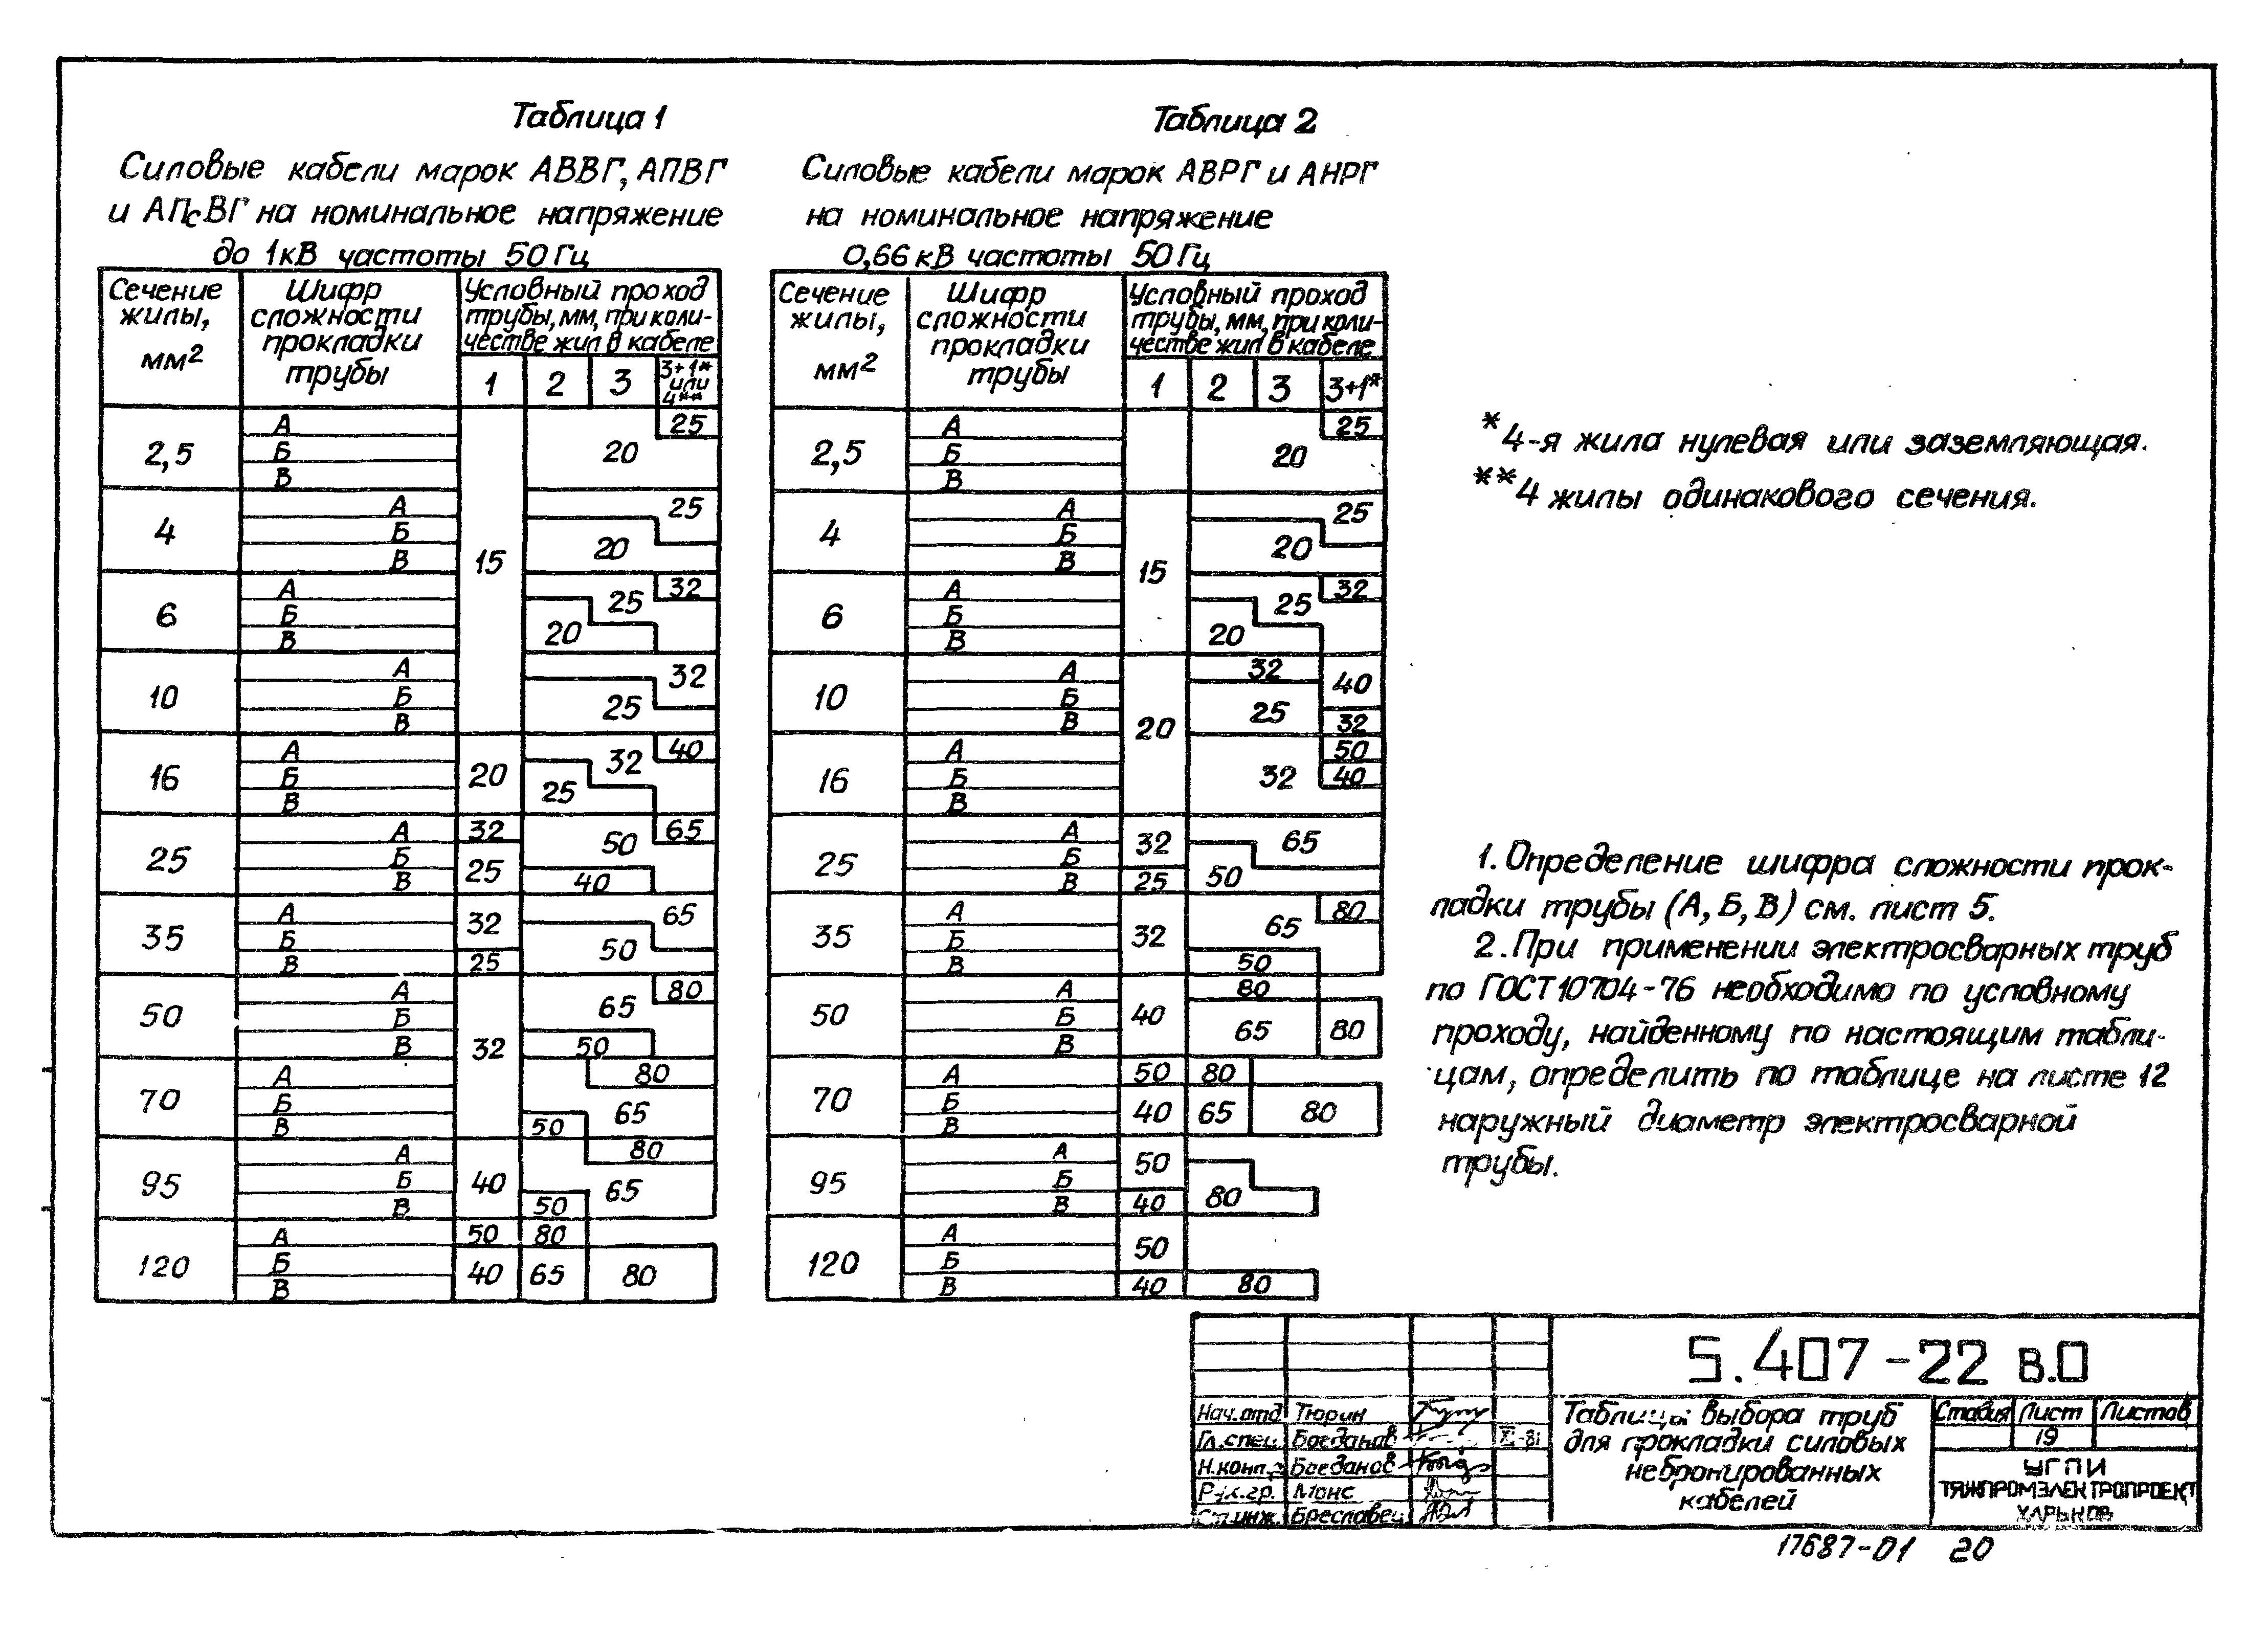 Таблица 1
Силовые кабели марок АВВГ, АПВГ
и АПсВГ на номинальное напряжение
до 1кВ частоты 50 Гц
Сечение жилы, мм2
Шифр сложности прокладки трубы
Условный проход
трубы, мм, при коли-
честве жил в кабеле
1 2 3 3+1* или 4**
2,5 А Б В 15 20 25
4 А Б В 25 20
6 А Б В 32 25 20
10 А Б В 32 25
16 А Б В 20 40 32 25
25 А Б В 32 25 65 50 40
35 А Б В 32 25 65 50
50 А Б В 32 80 65 50
70 А Б В 80 65 50
95 А Б В 40 80 65 50
120 А Б В 50 80 40 65 80
Таблица 2
Силовые кабели марок АВРГ и АНРГ
на номинальное напряжение
0,66 кВ частоты 50 Гц
Сечение жилы, мм2
Шифр сложности прокладки трубы
Условный проход
трубы, мм, при коли-
честве жил в кабеле
1 2 3 3+1*
2,5 А Б В 15 25 20
4 А Б В 25 20
6 А Б В 32 25 20
10 А Б В 20 32 40 25 32
16 А Б В 50 32 40
25 А Б В 32 25 65 50
35 А Б В 32 80 65 50
50 А Б В 40 80 65 80
70 А Б В 50 80 40 65 80
95 А Б В 50 40 80
120 А Б В 50 40 80
*4-я жила нулевая или заземляющая.
**4 жилы одинакового сечения.
1. Определение шифра сложности прок-
ладки трубы (А, Б, В) см. лист 5.
2. При применении электросварных труб
по ГОСТ 10704-76 необходимо по условному
проходу, найденному по настоящим табли-
цам, определить по таблице на листе 12
наружный диаметр электросварной
трубы.
5.407-22 в.0
Нач.отд Тюрин
Гл.спец. Богданов -81
Н.конп.р Богданов
Рук.гр. Монс
Ст.инж. Бреславец
Таблицы выбора труб
для прокладки силовых
небронированных
кабелей
Стадия Лист Листов
19
УГПИ
ТЯЖПРОМЭЛЕКТРОПРОЕКТ
ХАРЬКОВ
17687-01 20